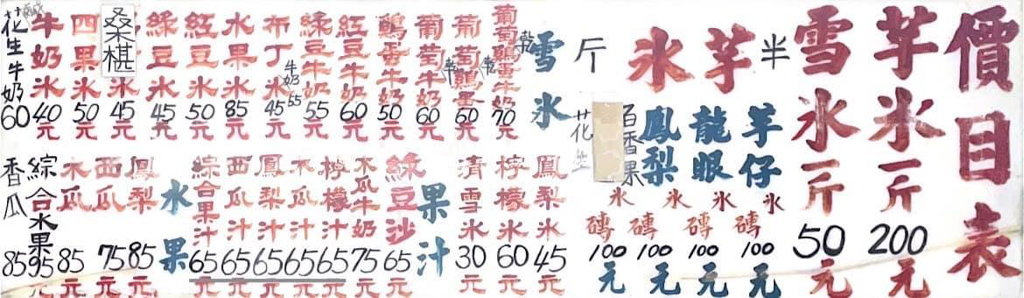 價目表
芋氷一斤200元
雪氷一斤50元
半芋氷斤
芋仔氷磚100元
龍眼氷磚100元
鳳梨氷磚100元
百香果氷磚100元
花生
雪氷
葡萄乾鷄蛋牛奶70元
葡萄乾鷄蛋60元
葡萄乾牛奶60元
鷄蛋牛奶50元
紅豆牛奶60元
綠豆牛奶55元
布丁氷45元
牛奶55
水果氷85元
紅豆氷50元
綠豆氷45元
桑椹氷45元
四果氷50元
牛奶氷40元
花生牛奶60
鳳梨氷45元
檸檬氷60元
清雪氷30元
果汁
綠豆沙65元
木瓜牛奶75元
檸檬汁65元
木瓜汁65元
鳳梨汁65元
西瓜汁65元
綜合果汁65元
水果
鳳梨85元
西瓜75元
木瓜85元
綜合水果95元
香瓜85元